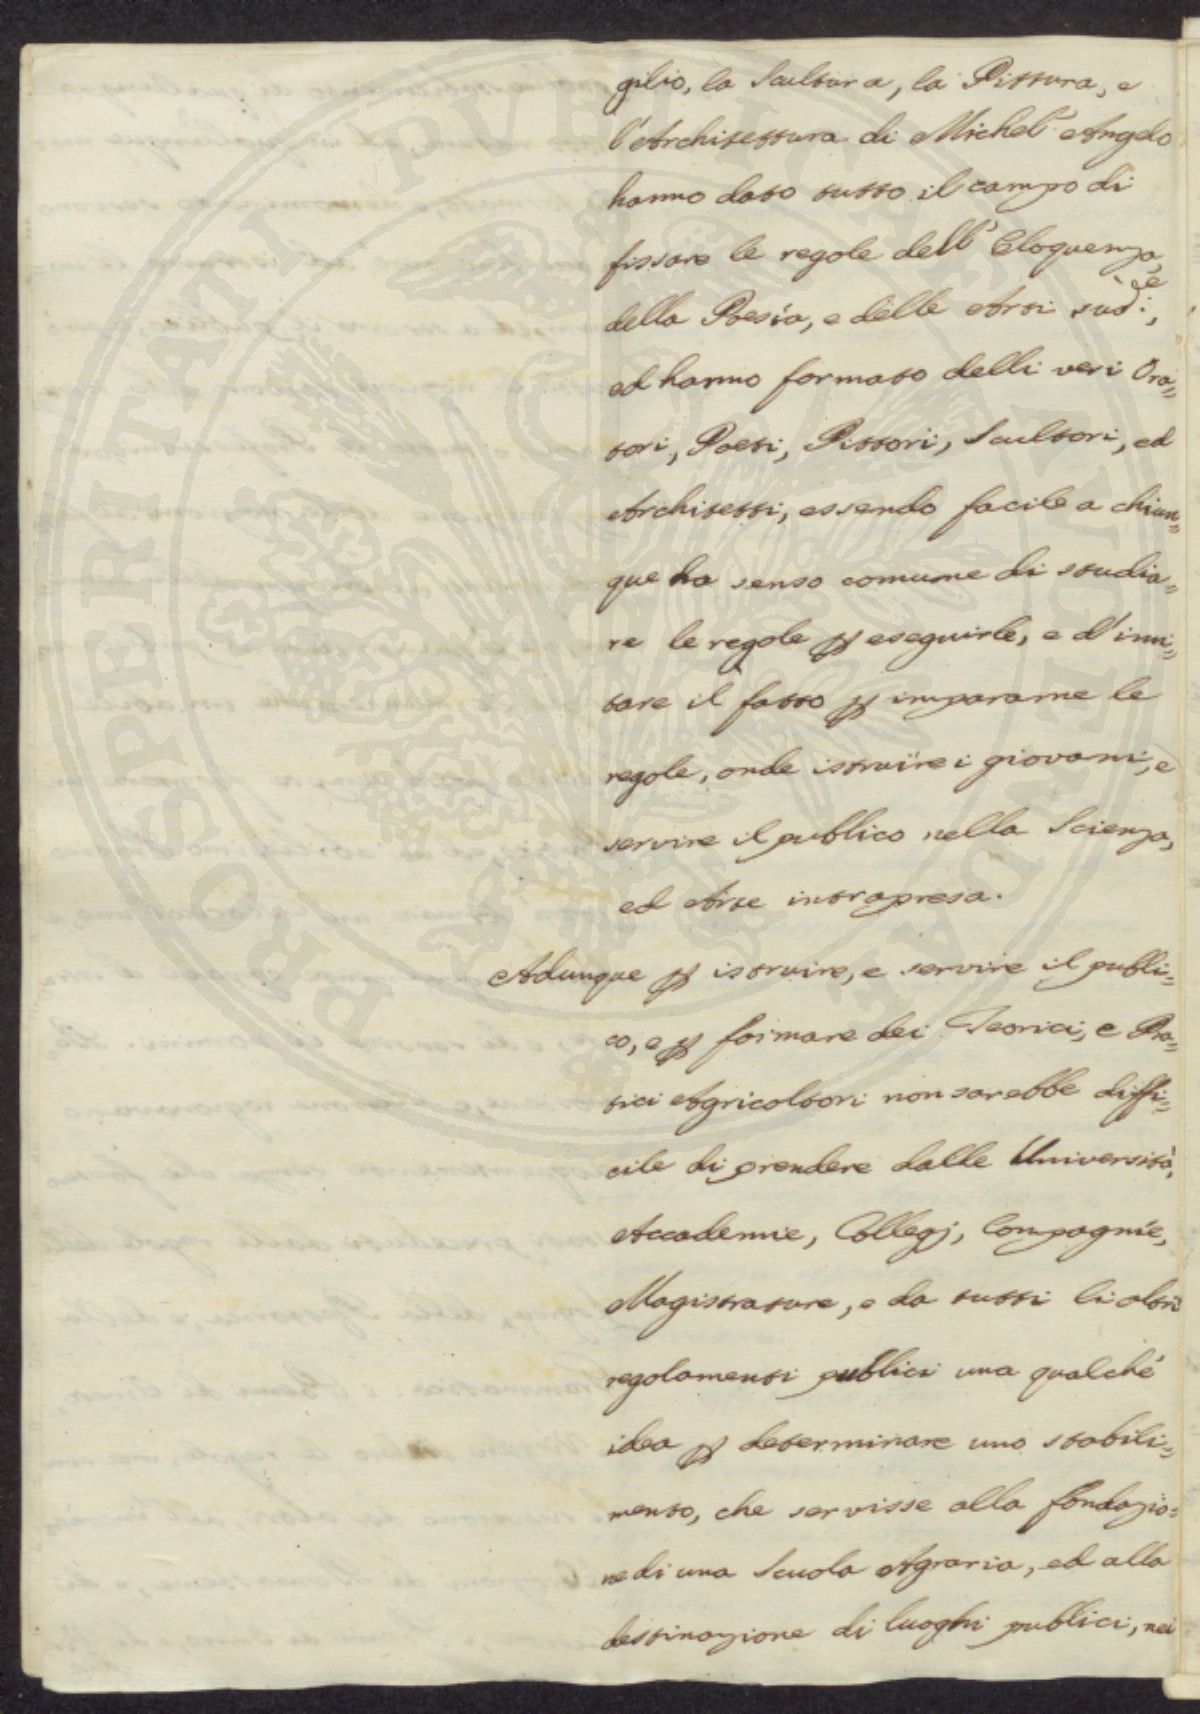 gilio, la Scultura, la Pittura, e
l'Architettura di Michel' Angelo
hanno dato tutto il campo di
fissare le regole dell' Eloquenza,
della Poesia, e delle Arti sudᵉ:,
ed hanno formato delli veri Ora=
tori, Poeti, Pittori, Scultori, ed
Architetti, essendo facile a chiun=
que ha senso comune di studia=
re le regole ꝑ eseguirle, e d'imi=
tare il fatto ꝑ impararne le
regole, onde istruire i giovani, e
servire il publico nella Scienza,
ed Arte intrapresa.
Adunque ꝑ istruire, e servire il publi=
co, e ꝑ formare dei Teorici, e Pra=
tici Agricoltori non sarebbe diffi=
cile di prendere dalle Università,
Accademie, Collegj, Compagnie,
Magistrature, e da tutti li altri
regolamenti publici una qualche
idea ꝑ determinare uno stabili=
mento, che servisse alla fondazio=
ne di una Scuola Agraria, ed alla
destinazione di luoghi publici, nei
PROSPERITATI PUBLICAE AUGENDAE